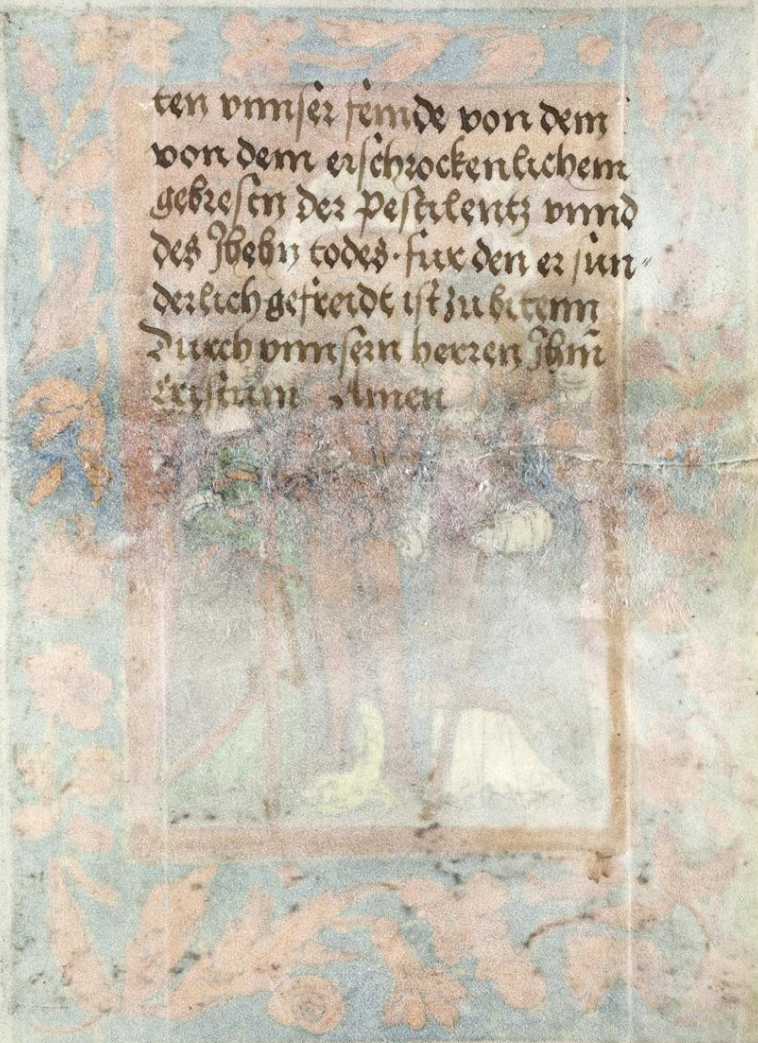 ten vnnser feinde von dem
von dem erschrockenlichem
gebresen der Pestilentz vnnd
des todes · fur den er sun-
derlich gefreidt ist zu bitenn
Durch vnnsern herren Jhm̄
Cristum Amen